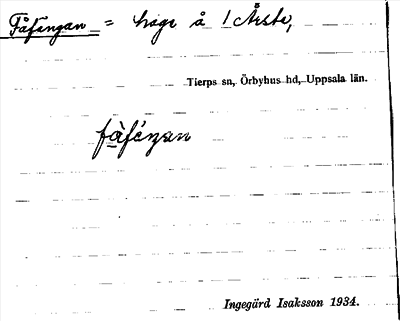 Fåfängan = hage å 1 Årsta,
Tierps sn, Örbyhus hd, Uppsala län.
fåfäŋan
Ingegärd Isaksson 1934.